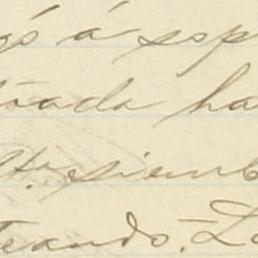 gó á esp
rada ha
siemb
teando. La